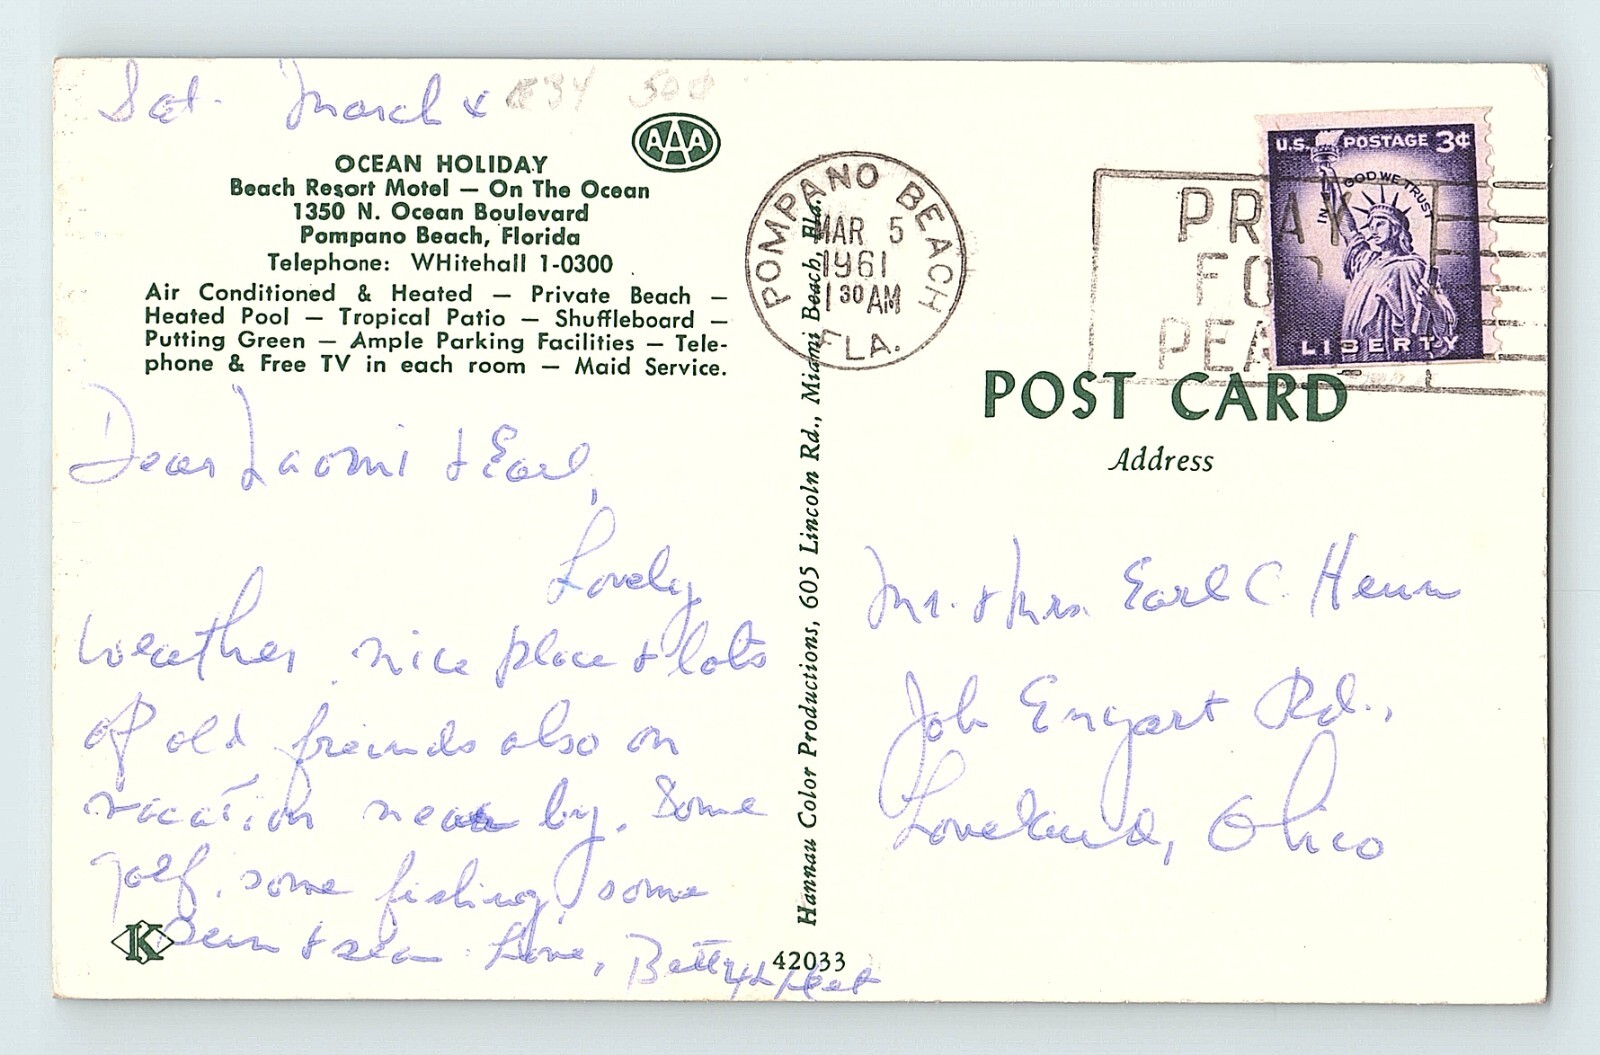 Sat. March 4
AAA
OCEAN HOLIDAY
Beach Resort Motel — On The Ocean
1350 N. Ocean Boulevard
Pompano Beach, Florida
Telephone: WHitehall 1-0300
Air Conditioned & Heated — Private Beach —
Heated Pool — Tropical Patio — Shuffleboard —
Putting Green — Ample Parking Facilities — Tele-
phone & Free TV in each room — Maid Service.
Dear Naomi & Earl,
Lovely
weather, nice place & lots
of old freinds also on
vacation near by. Some
golf, some fishing, some
sun & sea. Love, Betty &
K
42033
Hannau Color Productions, 605 Lincoln Rd., Miami Beach, Fla.
POMPANO BEACH
MAR 5
1961
1 30 AM
FLA.
PRAY
FOR
PEACE
U.S. POSTAGE 3¢
IN GOD WE TRUST
LIBERTY
POST CARD
Address
Mr. & Mrs. Earl C. Henn
Job Engart Rd.,
Loveland, Ohio